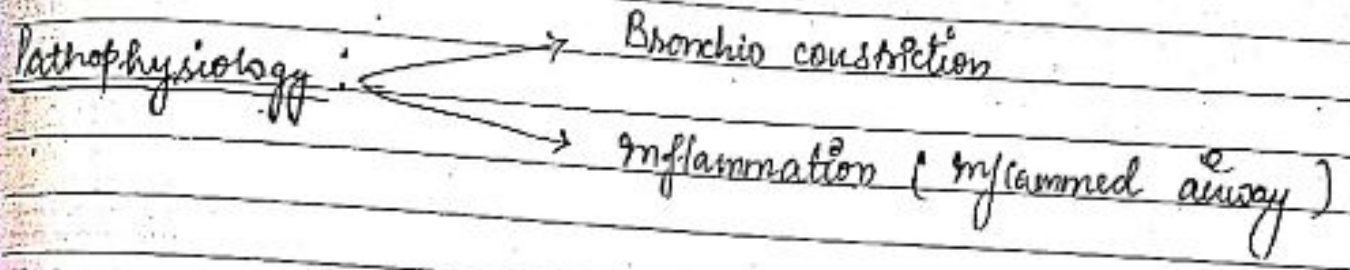 Pathophysiology :
Bronchio constriction
Inflammation ( Inflammed airway )